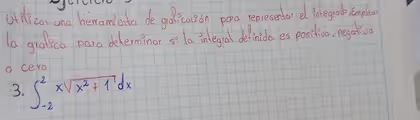 Ejercicio
Utilizar una herramienta de graficación para representar el integrando. Emplear
la grafica para determinar si la integral definida es positiva, negativa
o cero
3. ∫₋₂² x√(x² + 1) dx